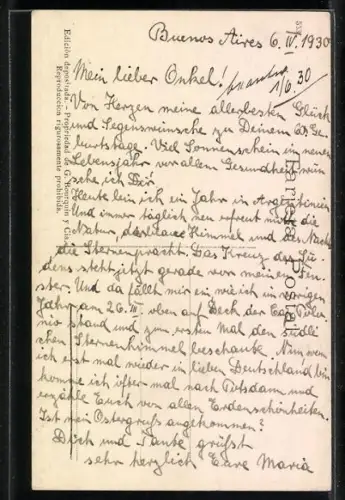 Buenos Aires 6. IV. 1930
Mein lieber Onkel!
1/6.30
Von Herzen meine allerbesten Glück
und Segenswünsche zu Deinem Ge
burtstage. Viel Sonnenschein im neuen
Lebensjahr vor allem Gesundheit wün
sche ich Dir
Heute bin ich ein Jahr in Argentinien
Und immer täglich neu erfreut mich die
Natur, der blaue Himmel und des Nachts
die Sternenpracht. Das Kreuz des Sü
dens steht jetzt gerade vor meinem Fen
ster. Und da fällt mir ein wie ich im vorigen
Jahr am 26. III. oben auf Deck der Cap Polo
nio stand und zum ersten Mal den südli
chen Sternenhimmel beschaute. Nun wenn
ich erst mal wieder im lieben Deutschland bin
komme ich öfter mal nach Potsdam und
erzähle Euch von allen Erdenschönheiten.
Ist mein Ostergruß angekommen?
Dich und Tante grüßt
sehr herzlich Eure Maria
Tarjeta Postal
Edición depositada. - Propiedad G. Bourquin y Cia.
Reproducción rigurosamente prohibida.